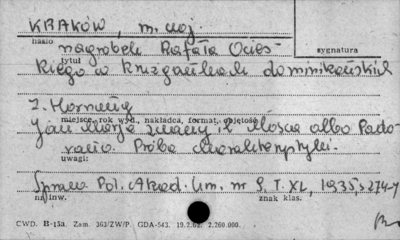 KRAKÓW, m. woj.
hasło
nagrobek Rafała Ocies-
sygnatura
tytuł
kiego w krużgankach dominikańskich
Z. Hornung
miejsce, rok wyd., nakładca, format, objętość
Jan Maria zwany il Mosca albo Pado-
vano. Próba charakterystyki.
uwagi:
Spraw. Pol. Akad. Um. nr 9, T. XL, 1935, s 274-7
nr inw.
znak klas.
CWD. B-15a. Zam. 363/ZW/P. GDA-543. 19.2.62 2.260.000.